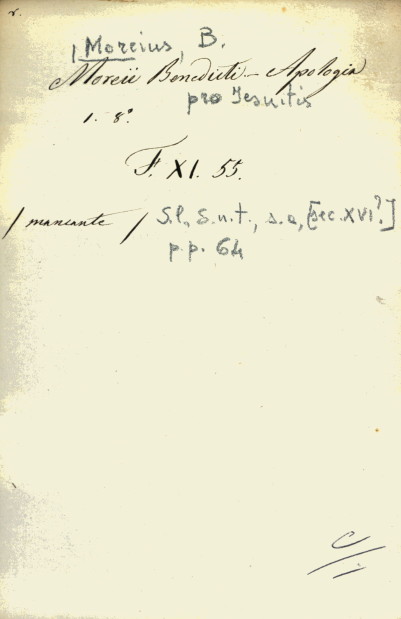 r.
| Moreius, B.
Moreii Benedicti - Apologia
pro Jesuitis
1. 8º
F. XI. 55.
/ mancante / S.l., S.n.t., s.a, [sec. XVI?]
p.p. 64
C